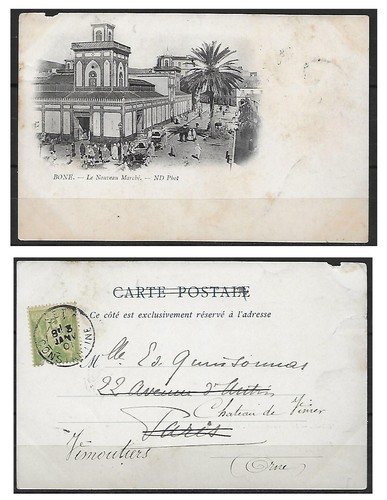 BONE. — Le Nouveau Marché. — ND Phot
CARTE POSTALE
Ce côté est exclusivement réservé à l'adresse
Mlle Ed. Quinsonnas
22 Avenue d'Antin
Chateau de Vimer
Paris
Vimoutiers
(Orne)